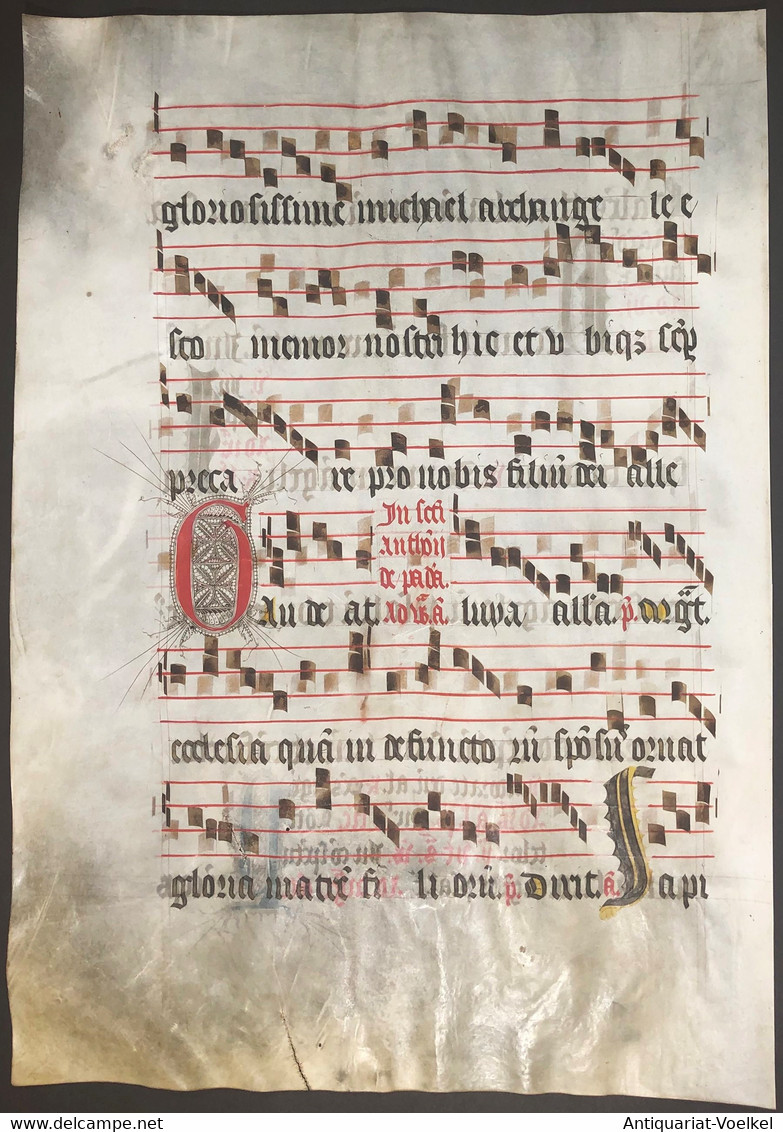 gloriosissime michael archange le e
sto memor nostri hic et v biqz semp
preca re pro nobis filiū dei alle
In scti
anthonij
de pad̄.
Gau de at luya all'a. p̄. Mgāt.
ecclesia quā in defuncto rū spōsū ornat
gloria matrē fi li orū. p̄. Dixit. ā. Sapi
Antiquariat-Voelkel